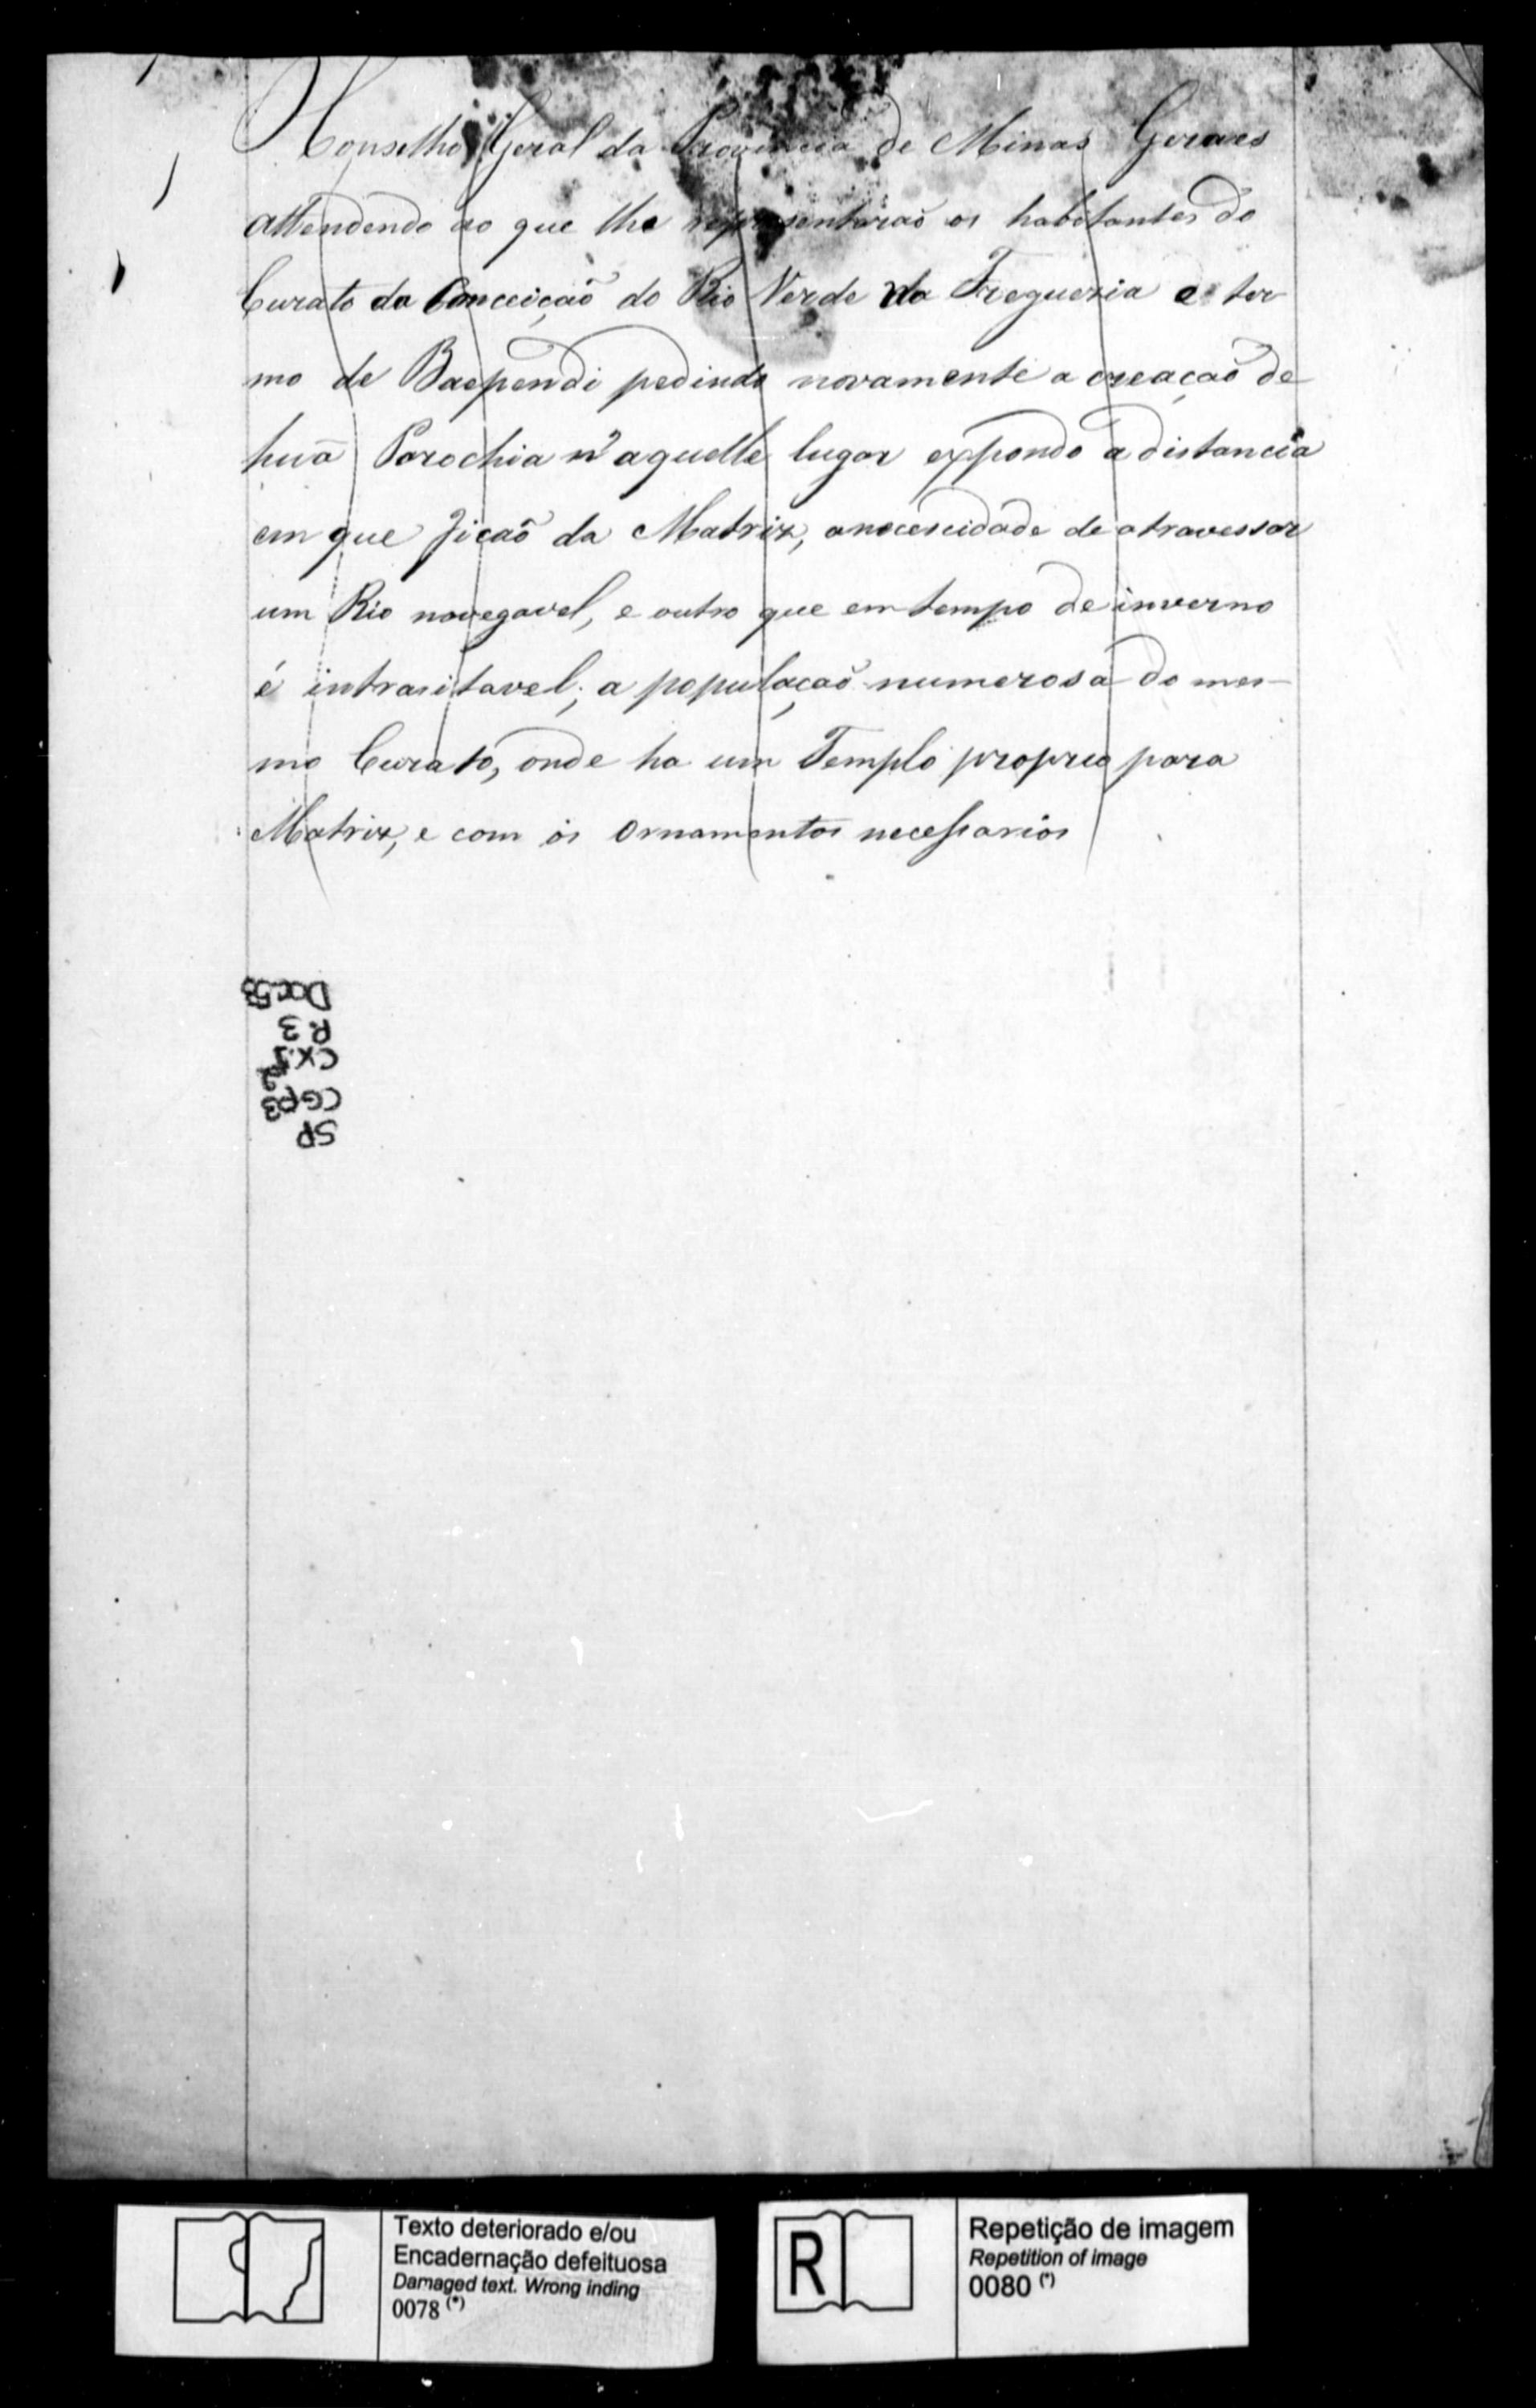 Conselho Geral da Provincia de Minas Geraes
attendendo ao que lhe representaraõ os habitantes do
Curato da Conceiçaõ do Rio Verde da Freguezia e ter
mo de Baependi pedindo novamente a creaçaõ de
huã Parochia n'aquelle lugar expondo a distancia
em que ficaõ da Matriz, a necescidade de atravessar
um Rio navegavel, e outro que em tempo de inverno
é intrasitavel; a populaçaõ numerosa do mes-
mo Curato, onde ha um Templo proprio para
Matriz, e com os Ornamentos necessarios
Doc.53
P.3
CX.1
2
CGP3
SP
Texto deteriorado e/ou
Encadernação defeituosa
Damaged text. Wrong inding
0078 (*)
R
Repetição de imagem
Repetition of image
0080 (*)